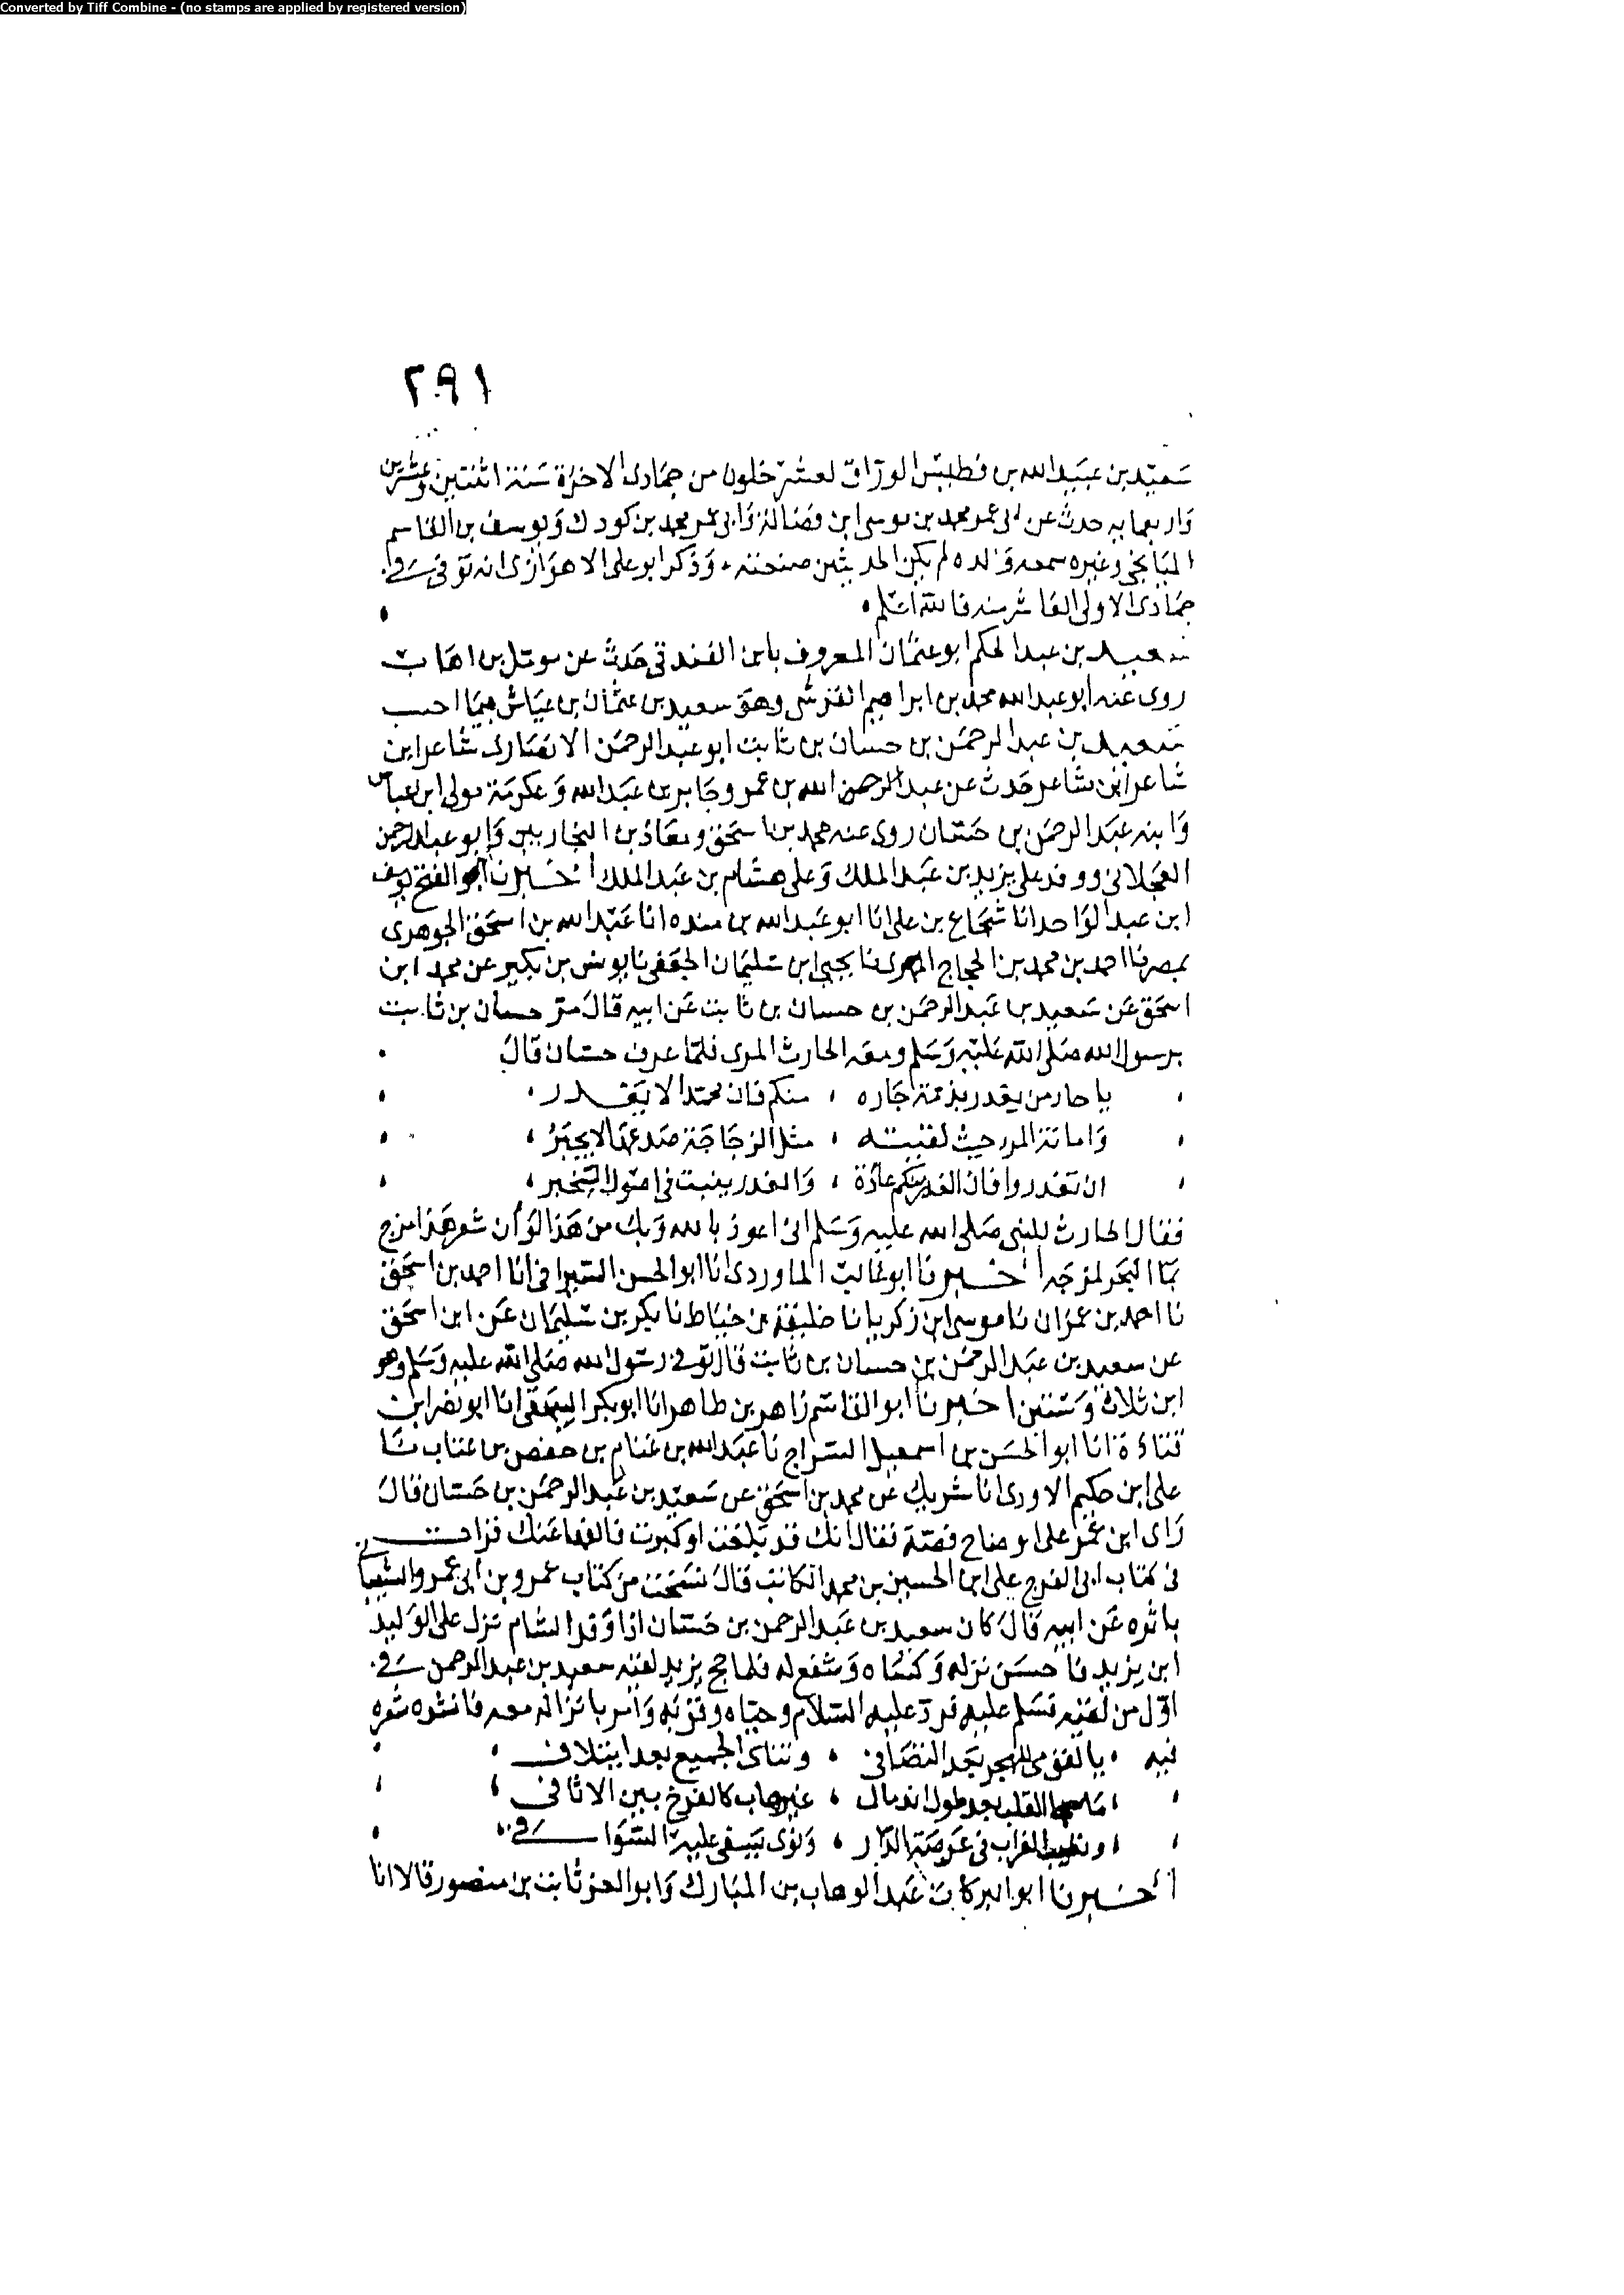 Converted by Tiff Combine - (no stamps are applied by registered version)
٢٩١
سعيد بن عبيد الله بن فطيس الوراق لعشر خلون من جمادى الاخرة سنة اثنتين وعشرين
واربعمايه حدث عن ابى عمر محمد بن موسى ابن فضالة وابى عمر محمد بن كودك ويوسف بن القاسم
الميانجى وغيره سمعه ولده لم يكن الحديث من صنعته وذكر ابو على الاهوازى انه توفى فى
جمادى الاولى العاشر منه فالله اعلم
سعيد بن عبد الحكم ابو عثمان المعروف بابن الفندقى حدث عن موئل بن اهاب
روى عنه ابو عبد الله محمد بن ابراهيم القرشى وهو سعيد بن عثمان بن عياش فيما احسب
سعيد بن عبد الرحمن بن حسان بن ثابت ابو عبد الرحمن الانصارى شاعر ابن
شاعر ابن شاعر حدث عن عبد الله بن عمر وجابر بن عبد الله وعكرمة مولى ابن عباس
وابنه عبد الرحمن بن حسان روى عنه محمد بن اسحق ومعاذ بن النجاريين وابو عبد الرحمن
العجلانى ووفد على يزيد بن عبد الملك وعلى هشام بن عبد الملك اخبرنا ابو الفتح يوسف
ابن عبد الواحد انا شجاع بن على انا ابو عبد الله بن منده انا عبد الله بن اسحق الجوهرى
بمصر نا احمد بن محمد بن الحجاج المهرى نا يحيى ابن سليمان الجعفى نا يونس بن بكير عن محمد ابن
اسحق عن سعيد بن عبد الرحمن بن حسان بن ثابت عن ابيه قال مر حسان بن ثابت
برسول الله صلى الله عليه وسلم ومعه الحارث المرى فلما عرف حسان قال
يا حار من يغدر بذمة جاره ، منكم فان محمدا لا يغدر
وامانة المرى حيث لقيته ، مثل الزجاجة صدعها لا يجبر
ان تغدروا فان الغدر منكم عادة ، والغدر ينبت فى اصول السخبر
فقال الحارث للنبى صلى الله عليه وسلم انى اعوذ بالله وبك من هذا لو أن شعر هذا مزج
بماء البحر لمزجه اخبرنا ابو غالب الماوردى انا ابو الحسن السيرافى انا احمد بن اسحق
نا احمد بن عمران نا موسى ابن زكريا نا خليفة بن خياط نا بكر بن سليمان عن ابن اسحق
عن سعيد بن عبد الرحمن بن حسان بن ثابت قال توفى رسول الله صلى الله عليه وسلم وهو
ابن ثلاث وستين اخبرنا ابو القاسم زاهر بن طاهر انا ابو بكر البيهقى انا ابو نصر ابن
قتادة انا ابو الحسن بن اسمعيل السراج نا عبد الله بن غنام بن حفص بن غياث نا
على ابن حكيم الاودى انا شريك عن محمد بن اسحق عن سعيد بن عبد الرحمن بن حسان قال
راى ابن عمر على اوضاح فضة فقال انك قد بلغت او كبرت فالقها عنك قرات
فى كتاب ابى الفرج على ابن الحسين بن محمد الكاتب قال نسخت من كتاب عمرو بن ابى عمرو الشيبانى
ياثره عن ابيه قال كان سعيد بن عبد الرحمن بن حسان اذا وفد الشام نزل على الوليد
ابن يزيد فاحسن نزله وكساه وشفع له فلما حج يزيد لقيه سعيد بن عبد الرحمن فى
اول من لقيه فسلم عليه فرد عليه السلام وحياه وقربه وامر بانزاله معه فانشده شعره
فيه يالقومى للهجر بعد التصافى ، وتنائى الجميع بعد ايتلاف
ما القلب بعد طول اندمال ، غير هاب كالفرخ بين الاثافى
ونعيب الغراب فى عرصة الدار ، ونؤى تسفى عليه السوافى
اخبرنا ابو البركات عبد الوهاب بن المبارك وابو العز ثابت بن منصور قالا انا